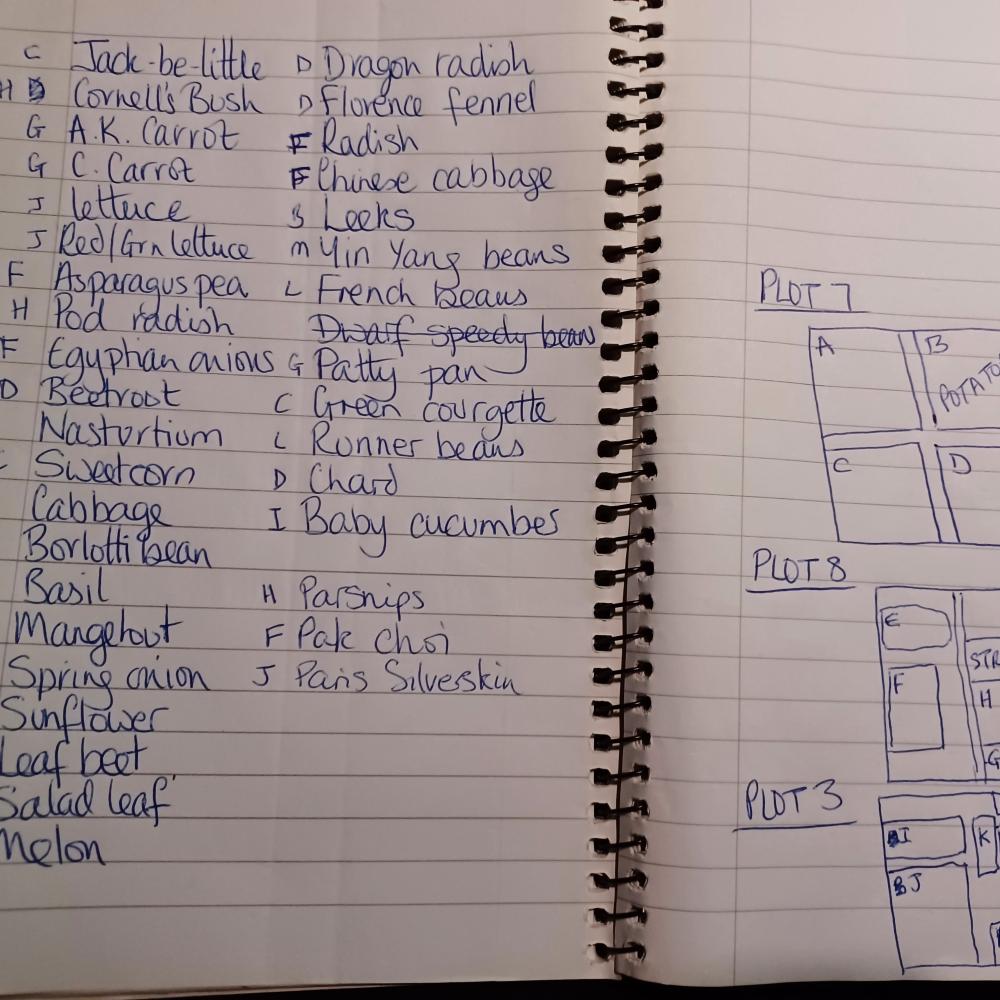 C Jack-be-little
H Cornell's Bush
G A.K. Carrot
G C. Carrot
J lettuce
J Red/Grn lettuce
F Asparagus pea
H Pod radish
F Egyphan onions
D Beetroot
Nastortium
C Sweetcorn
Cabbage
Borlotti bean
Basil
Mangetout
Spring onion
Sunflower
Leaf beet
Salad leaf
Melon
D Dragon radish
D Florence fennel
F Radish
F Chinese cabbage
B Leeks
M Yin Yang beans
L French Beans
Dwarf speedy bean
G Patty pan
C Green courgette
L Runner beans
D Chard
I Baby cucumbes
H Parsnips
F Pak choi
J Paris Silverskin
PLOT 7
A
B
POTATO
C
D
PLOT 8
E
F
STR
H
G
PLOT 3
I
K
J